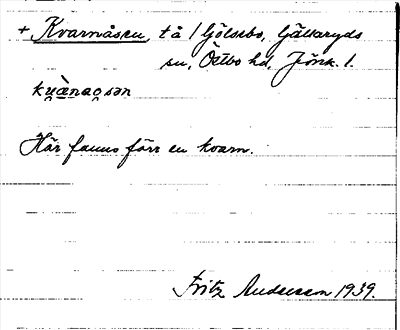 + Kvarnåsen, tå / Gölsebo, Gällaryds
sn, Östbo hd, Jönk. l.
kṷànaosən
Här fanns förr en kvarn.
Fritz Andersson 1939.